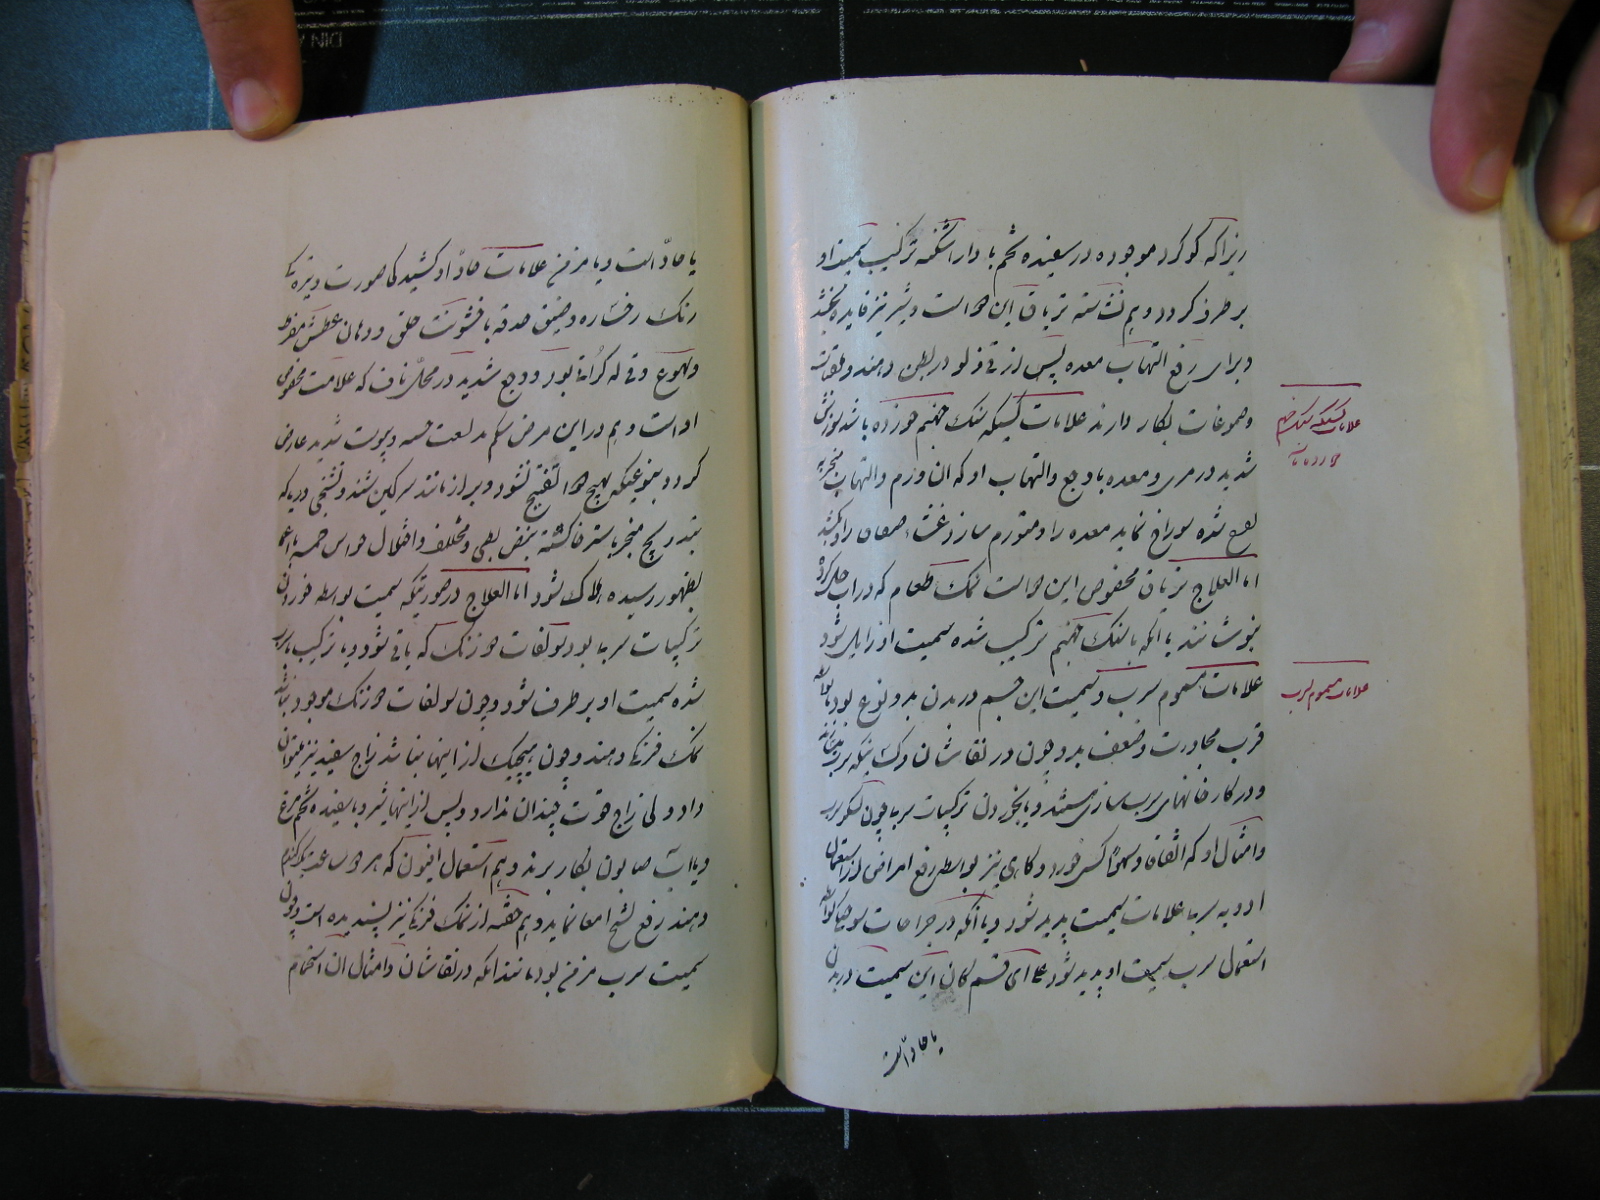 زیرا که گوگرد موجوده در سفیده تخم با دار اشکنه ترکیب سمیت او
برطرف کردد و هم نشاسته تریاق این دوا است و شیر نیز فایده بخشد
و برای رفع التهاب معده پس از قی زلو در بطن دهند و ملعقات
و صموغات بکار دارند علامات کسیکه سنک جهنم خورده باشد سوزش
شدید در مری و معده با وجع و التهاب او که ان ورم و التهاب منجر به
بقع شده سوراخ نماید معده را و متورم سازد غشاء صفاق را و بکشد
اما العلاج تریاق مخصوص این دواست نمک طعام که در اب حل کرده
بنوشانند با انکه با سنک جهنم ترکیب شده سمیت او زایل شود
علامات مسموم سرب و سمیت این جسم در بدن بدو نوع بود بواسطه
قرب مجاورت و ضعف بدن چون در نقاشان و کسانیکه سرب
و در کارخانهای سرب سازی هستند و یا بخوردن ترکیبات سرب چون سکر سرب
و امثال او که اتفاقا و سهوا کس خورد و کاهی نیز بواسطه رفع امراض از استعمال
ادویه سرب علامات سمیت پدید شود و یا انکه در جراحات سوختگی بواسطه
استعمال سرب سمیت او پدید شود علی ای قسم کان این سمیت در بدن
یا حاد است
علامات کسیکه سنک جهنم
خورده باشد
علامات مسموم سرب
یا حاد است و یا مزمن علامات حاد او کشیدکی صورت و تیره کی
رنک رخساره و ضیق حدقه با خشونت حلق و دهان عطش مفرط
و تهوع و قی که کراثی بود و وجع شدید در محل ناف که علامت مخصوص
او است و هم در این مرض شکم بدلعت خسه و یبوست شدید عارض
کردد بنوعیکه بهیچ دوا تفتیح نشود و براز مانند سرکین شند و تشنجی در پا که
بتدریج منجر باسترخا کشته نبض بطی و مختلف و اختلال حواس خمسه و اغما
بظهور رسیده هلاک شود اما العلاج در صورتیکه سمیت بواسطه خوردن
ترکیبات سرب بود سولفات دوزنک که باقی شود و با ترکیب سرب
شده سمیت او برطرف شود و چون سولفات دوزنک موجود نباشد
نمک فرنکی دهند و چون هیچیک از اینها نباشد زاج سفید نیز میتوان
داد ولی زاج قوت چندان ندارد و پس از اینها شیر و یا سفیده تخم مرغ
و یا اب صابون بکار برند و هم استعمال افیون که هر دو ساعت یک کندم
دهند رفع تشنج امعا نماید و هم حقنه از نمک فرنکی نیز پسندیده است و چون
سمیت سرب مزمن بود مانند انکه در نقاشان و امثال ان استحمام